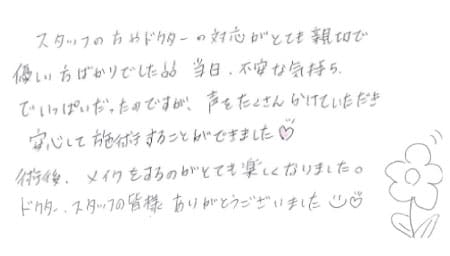 スタッフの方やドクターの対応がとても親切で
優しい方ばかりでした。。当日、不安な気持ち
でいっぱいだったのですが、声をたくさんかけていただき
安心して施術することができました♡
術後、メイクをするのがとても楽しくなりました。
ドクター、スタッフの皆様 ありがとうございました☺♡